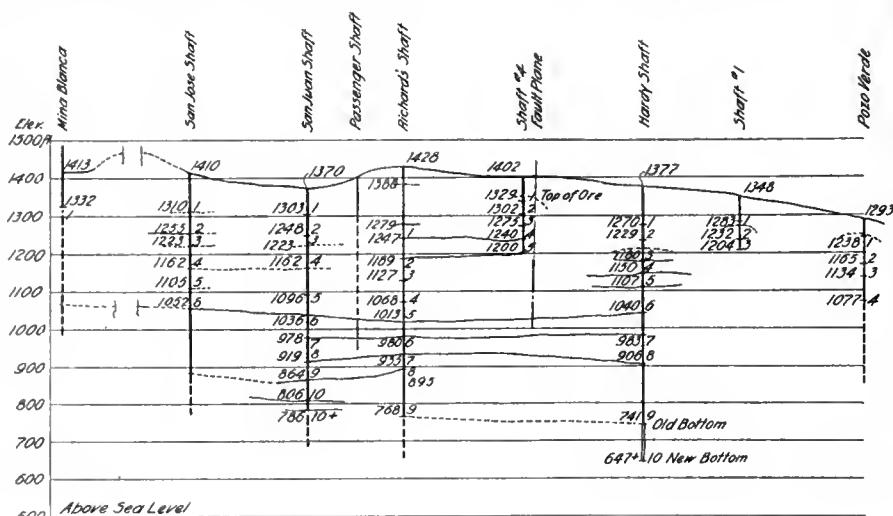 Mina Blanca
San Jose Shaft
San Juan Shaft
Passenger Shaft
Richard's Shaft
Shaft #4
Fault Plane
Hardy Shaft
Shaft #1
Pozo Verde
Elev.
1500ft
1400
1300
1200
1100
1000
900
800
700
600
500
1413
1332
1
1410
1310 1
1255 2
1223 3
1162 4
1105 5
1052 6
1370
1303 1
1248 2
1223 3
1162 4
1096 5
1036 6
978 7
919 8
864 9
806 10
786 10+
1428
1388
1279
1247 1
1189 2
1127 3
1068 4
1013 5
980 6
935 7
8
895
768 9
1402
1329 1 Top of Ore
1302 2
1275 3
1240 4
1200 5
1377
1270 1
1229 2
1180 3
1150 4
1107 5
1040 6
983 7
906 8
741 9 Old Bottom
647± 10 New Bottom
1348
1283 1
1232 2
1204 3
1293
1238 1
1165 2
1134 3
1077 4
Above Sea Level